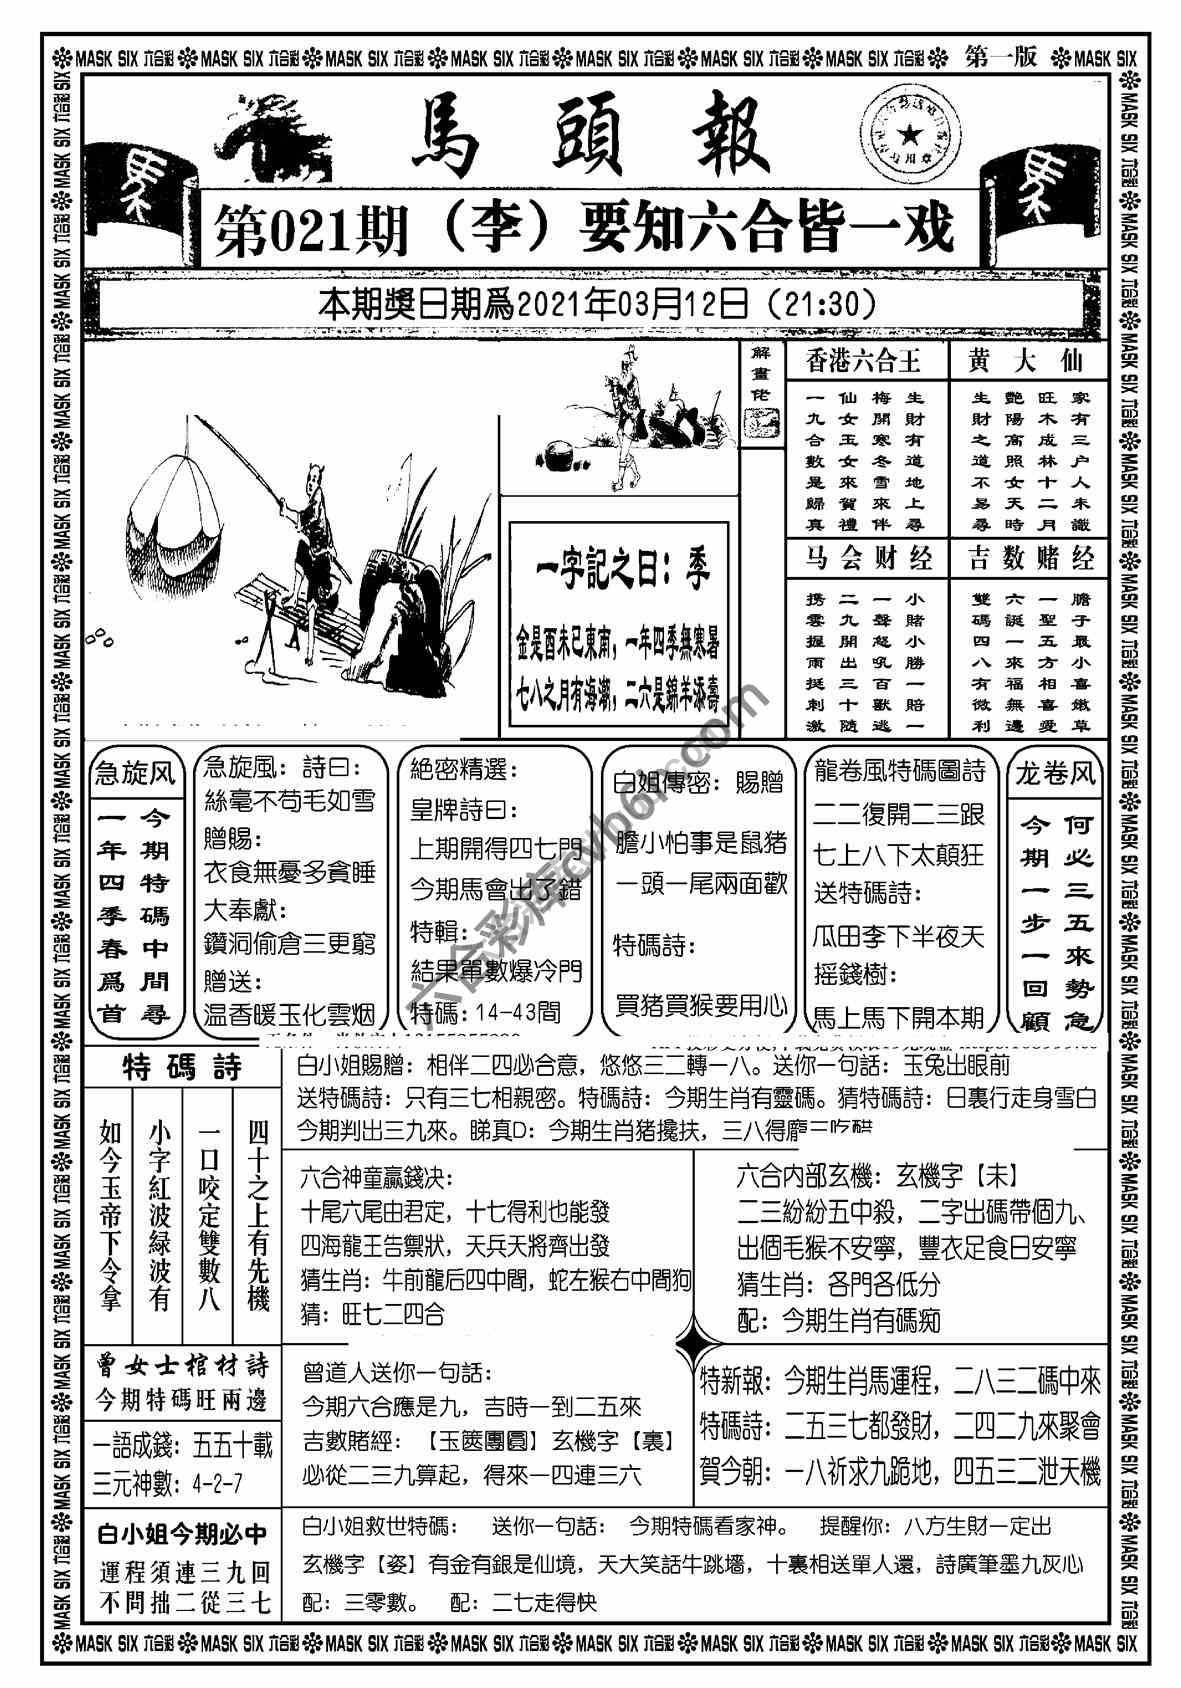 MASK SIX 六合彩 MASK SIX 六合彩 MASK SIX 六合彩 MASK SIX 六合彩 MASK SIX 六合彩 MASK SIX 六合彩 MASK SIX 六合彩 第一版 MASK SIX
馬頭報
第021期（李）要知六合皆一戏
本期獎日期爲2021年03月12日（21:30）
解畫佬
香港六合王
生財有道地上尋
梅開寒冬雪來伴
仙女玉女來賀禮
一九合數是歸真
黄大仙
家有三户人未識
旺木成林十二月
艷陽高照女天時
生財之道不易尋
马会财经
小賭小勝一賠一
一聲怒吼百獸逃
二九開出三十隨
携雲握雨挺刺激
吉数赌经
膽子最小喜嫩草
一聖五方相喜愛
六誕一來福無邊
雙碼四八有微利
一字記之曰：季
金是酉未巳東南，一年四季無寒暑
七八之月有海潮，二六是錦羊添壽
急旋风
今期特碼中間尋
一年四季春爲首
急旋風：詩曰：
絲毫不苟毛如雪
贈賜：
衣食無憂多貪睡
大奉獻：
鑽洞偷倉三更窮
贈送：
温香暖玉化雲烟
絕密精選：
皇牌詩曰：
上期開得四七門
今期馬會出了錯
特輯：
結果單數爆冷門
特碼：14-43間
白姐傳密：賜贈
膽小怕事是鼠猪
一頭一尾兩面歡
特碼詩：
買猪買猴要用心
龍卷風特碼圖詩
二二復開二三跟
七上八下太顛狂
送特碼詩：
瓜田李下半夜天
摇錢樹：
馬上馬下開本期
龙卷风
何必三五來勢急
今期一步一回顧
六合彩库cvb6h.com
特碼詩
四十之上有先機
一口咬定雙數八
小字紅波緑波有
如今玉帝下令拿
白小姐賜贈：相伴二四必合意，悠悠三二轉一八。送你一句話：玉兔出眼前
送特碼詩：只有三七相親密。特碼詩：今期生肖有靈碼。猜特碼詩：日裏行走身雪白
今期判出三九來。睇真D：今期生肖猪攙扶，三八得龐三吃醋
六合神童贏錢決：
十尾六尾由君定，十七得利也能發
四海龍王告禦狀，天兵天將齊出發
猜生肖：牛前龍后四中間，蛇左猴右中間狗
猜：旺七二四合
六合内部玄機：玄機字【未】
二三紛紛五中殺，二字出碼帶個九、
出個毛猴不安寧，豐衣足食日安寧
猜生肖：各門各低分
配：今期生肖有碼痴
曾女士棺材詩
今期特碼旺兩邊
一語成錢：五五十載
三元神數：4-2-7
曾道人送你一句話：
今期六合應是九，吉時一到二五來
吉數賭經：【玉篋團圓】玄機字【裏】
必從二三九算起，得來一四連三六
特新報：今期生肖馬運程，二八三二碼中來
特碼詩：二五三七都發財，二四二九來聚會
賀今朝：一八祈求九跪地，四五三二泄天機
白小姐今期必中
運程須連三九回
不問拙二從三七
白小姐救世特碼： 送你一句話： 今期特碼看家神。 提醒你：八方生財一定出
玄機字【姿】有金有銀是仙境，天大笑話牛跳墻，十裏相送單人還，詩廣筆墨九灰心
配：三零數。 配：二七走得快
MASK SIX 六合彩 MASK SIX 六合彩 MASK SIX 六合彩 MASK SIX 六合彩 MASK SIX 六合彩 MASK SIX 六合彩 MASK SIX 六合彩 MASK SIX 六合彩 MASK SIX